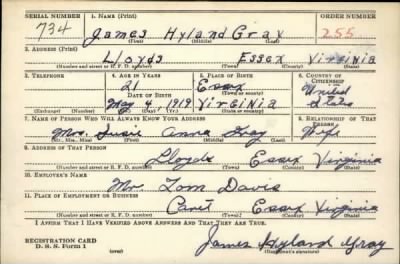 SERIAL NUMBER 1. NAME (Print) ORDER NUMBER
734 James Hyland Gray 255
(First) (Middle) (Last)
2. ADDRESS (Print)
Lloyds Essex Virginia
(Number and street or R. F. D. number) (Town) (County) (State)
3. TELEPHONE 4. AGE IN YEARS 5. PLACE OF BIRTH 6. COUNTRY OF CITIZENSHIP
21 Essex United
DATE OF BIRTH (Town or county)
May 4, 1919 Virginia States
(Exchange) (Number) (Mo.) (Day) (Yr.) (State or country)
7. NAME OF PERSON WHO WILL ALWAYS KNOW YOUR ADDRESS 8. RELATIONSHIP OF THAT PERSON
Mrs. Susie Anna Gray Wife
(Mr., Mrs., Miss) (First) (Middle) (Last)
9. ADDRESS OF THAT PERSON
Lloyds Essex Virginia
(Number and street or R. F. D. number) (Town) (County) (State)
10. EMPLOYER'S NAME
Mr. Tom Davis
11. PLACE OF EMPLOYMENT OR BUSINESS
Caret Essex Virginia
(Number and street or R. F. D. number) (Town) (County) (State)
I AFFIRM THAT I HAVE VERIFIED ABOVE ANSWERS AND THAT THEY ARE TRUE.
REGISTRATION CARD
D. S. S. Form 1 James Hyland Gray
(over) (Registrant's signature)